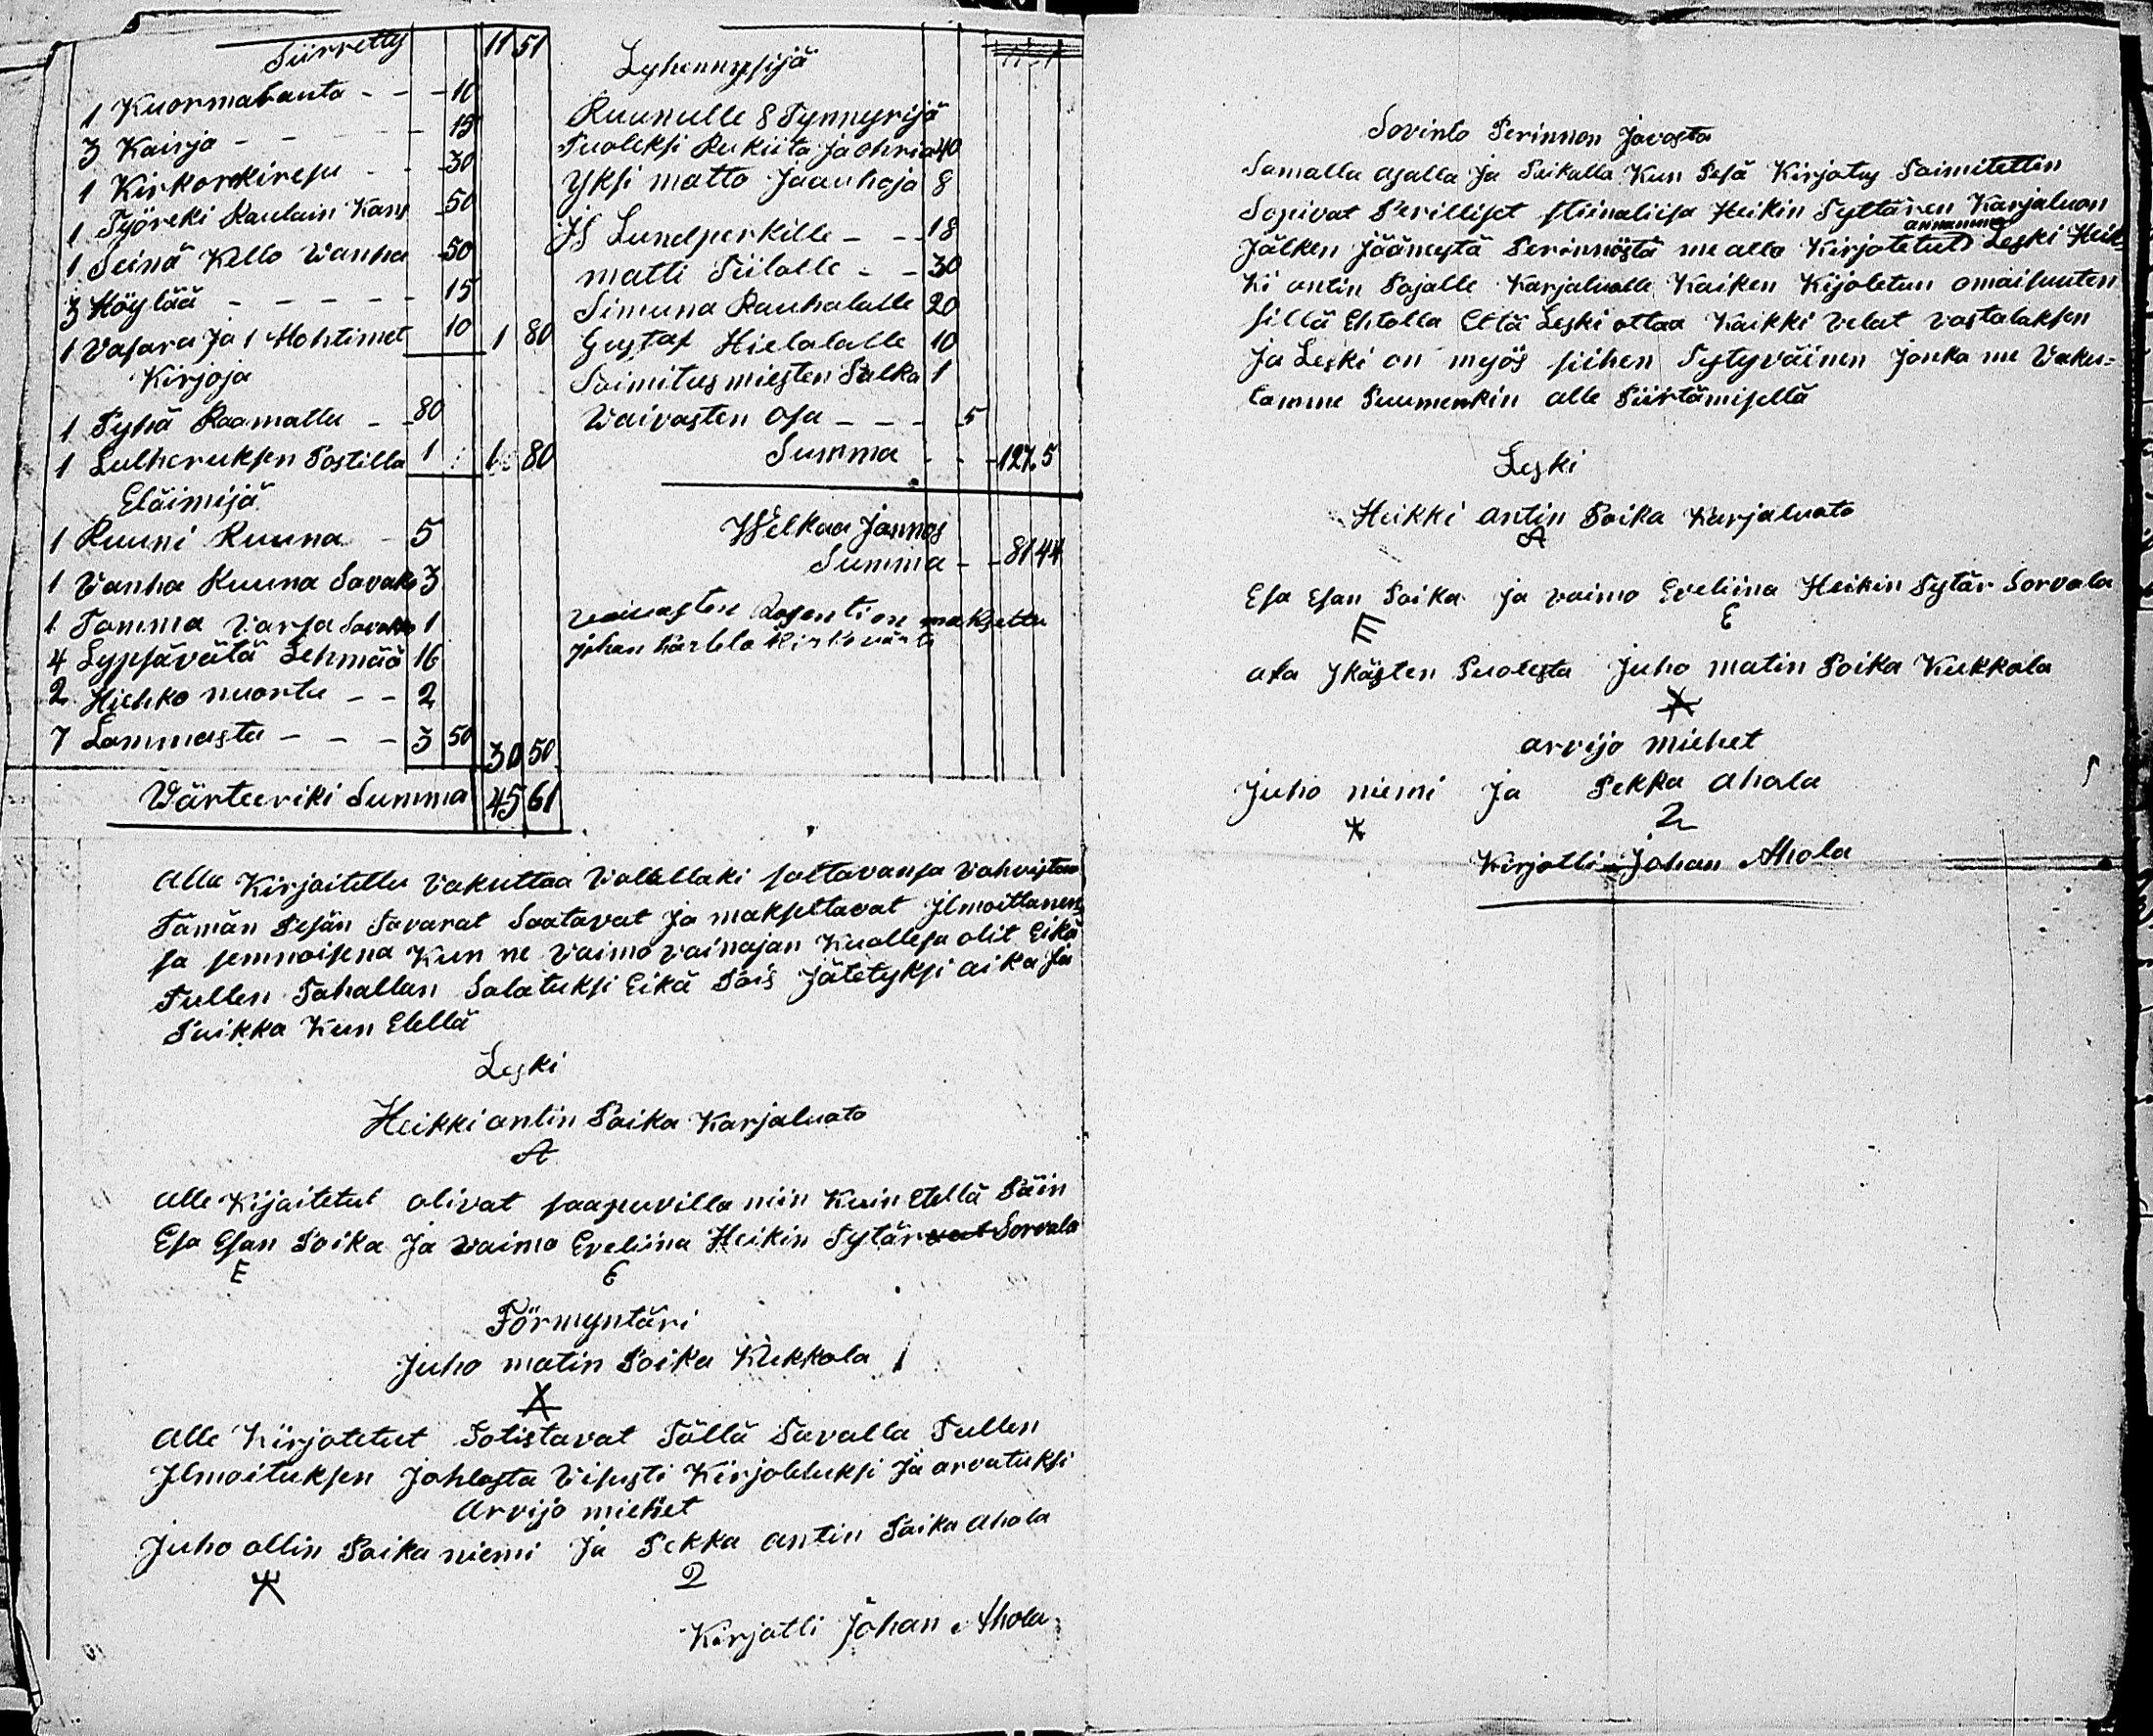 Siirretty 11 51
1 Kuormalauta - - - 10
3 Kairja - - - - 15
1 Kirkorkiresu - - 30
1 Työreki Raulain Kans 50
1 Seinä Kello Vanha 50
3 Höylää - - - - - 15
1 Vasara Ja 1 Mohtimet 10 1 80
Kirjoja
1 Pyhä Raamattu - - 80
1 Lutheruksen Postilla 1 1 80
Eläimijä
1 Ruuni Ruuna - 5
1 Vanha Ruuna Savako 3
1 Tamma Varsa Savako 1
4 Lypsävätä Lehmää 16
2 Hiehko nuorta - - 2
7 Lammasta - - - 3 50 30 50
Värteeriki Summa 45 61
Lyhennysijä
Ruunulle 8 Tynnyrijä
Puoleksi Rukiita ja ohria 40
Yksi matto Jaauhoja 8
JS Lundperkille - - 18
matti Piilolle - - 30
Simuna Rauhalalle 20
Gustaf Hielalalle 10
Toimitusmiesten Palka 1
Vaivasten osa - - - 5
Summa - - - 127. 5
Welkaa Jannos
Summa - - 81 44
vaivasten Rosenti on maksettu
johan härtelo kirkovärti
Alla Kirjoitettu Vakuttaa Valallaki fattavansa Vahvistaa
Tämän Pesän Tavarat Saatavat Ja maksettavat Jlmoittanen,
sa semnoisena Kun ne Vaimo vainajan Kuollesa olit Eikä
Tullen Tahallan Salatuksi Eikä Pois Jätetyksi aika Ja
Paikka Kun Elellä
Leski
Heikki antin Poika Karjaluoto
A
Alle Kijaitetut olivat saapuvilla niin Kuin Etellä Päin
Esa Esan Poika Ja Vaimo Eveliina Heikin Tytär Sorvala
E E
Förmyntäri
Juho matin Poika Kukkola
X
Alle Kirjotetut Totistavat Tällä Tavalla Tullen
Jlmoituksen Johlosta Visusti Kirjoletuksi Ja arvatuksi
Arvijo miehet
Juho ollin Poika niemi Ja Pekka antin Poika ahola
2
Kirjotti Johan Ahola
Sovinto Perinnon Javosta
Samalla ajalla Ja Paikalla Kun Pesä Kirjotus Toimitettin
Sopivat Perilliset stiinaliisa Heikin Tyttären Karjaluon
Jälken Jääneestä Perinnöstä me alla Kirjotetut annamme Leski Heik-
ki antin Pojalle Karjaluolle Kaiken Kijoletun omaisuuten
sillä Ehtolla Että Leski ottaa Kaikki Velat Vastalaksen
Ja Leski on myös siihen Tytyväinen Jonka me Vaku=
tamme Puumenkin alle Piirtämisellä
Leski
Heikki antin Poika Karjaluoto
A
Esa Esan Poika Ja vaimo Eveliina Heikin Tytär Sorvala
E E
ala Jkästen Puolesta Juho matin Poika Kukkola
X
arvijo miehet
Juho niemi Ja Pekka ahola
2
Kirjotti Johan Ahola